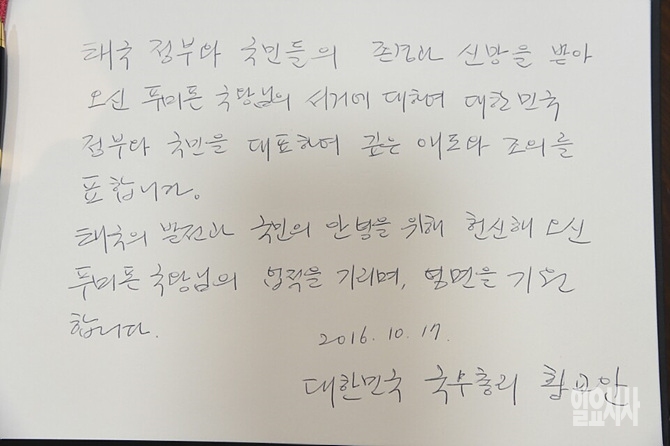 태국 정부와 국민들의 존경과 신망을 받아
오신 푸미폰 국왕님의 서거에 대하여 대한민국
정부와 국민을 대표하여 깊은 애도와 조의를
표합니다.
태국의 발전과 국민의 안녕을 위해 헌신해 오신
푸미폰 국왕님의 업적을 기리며, 영면을 기원
합니다.
2016. 10. 17.
대한민국 국무총리 황교안
일요시사